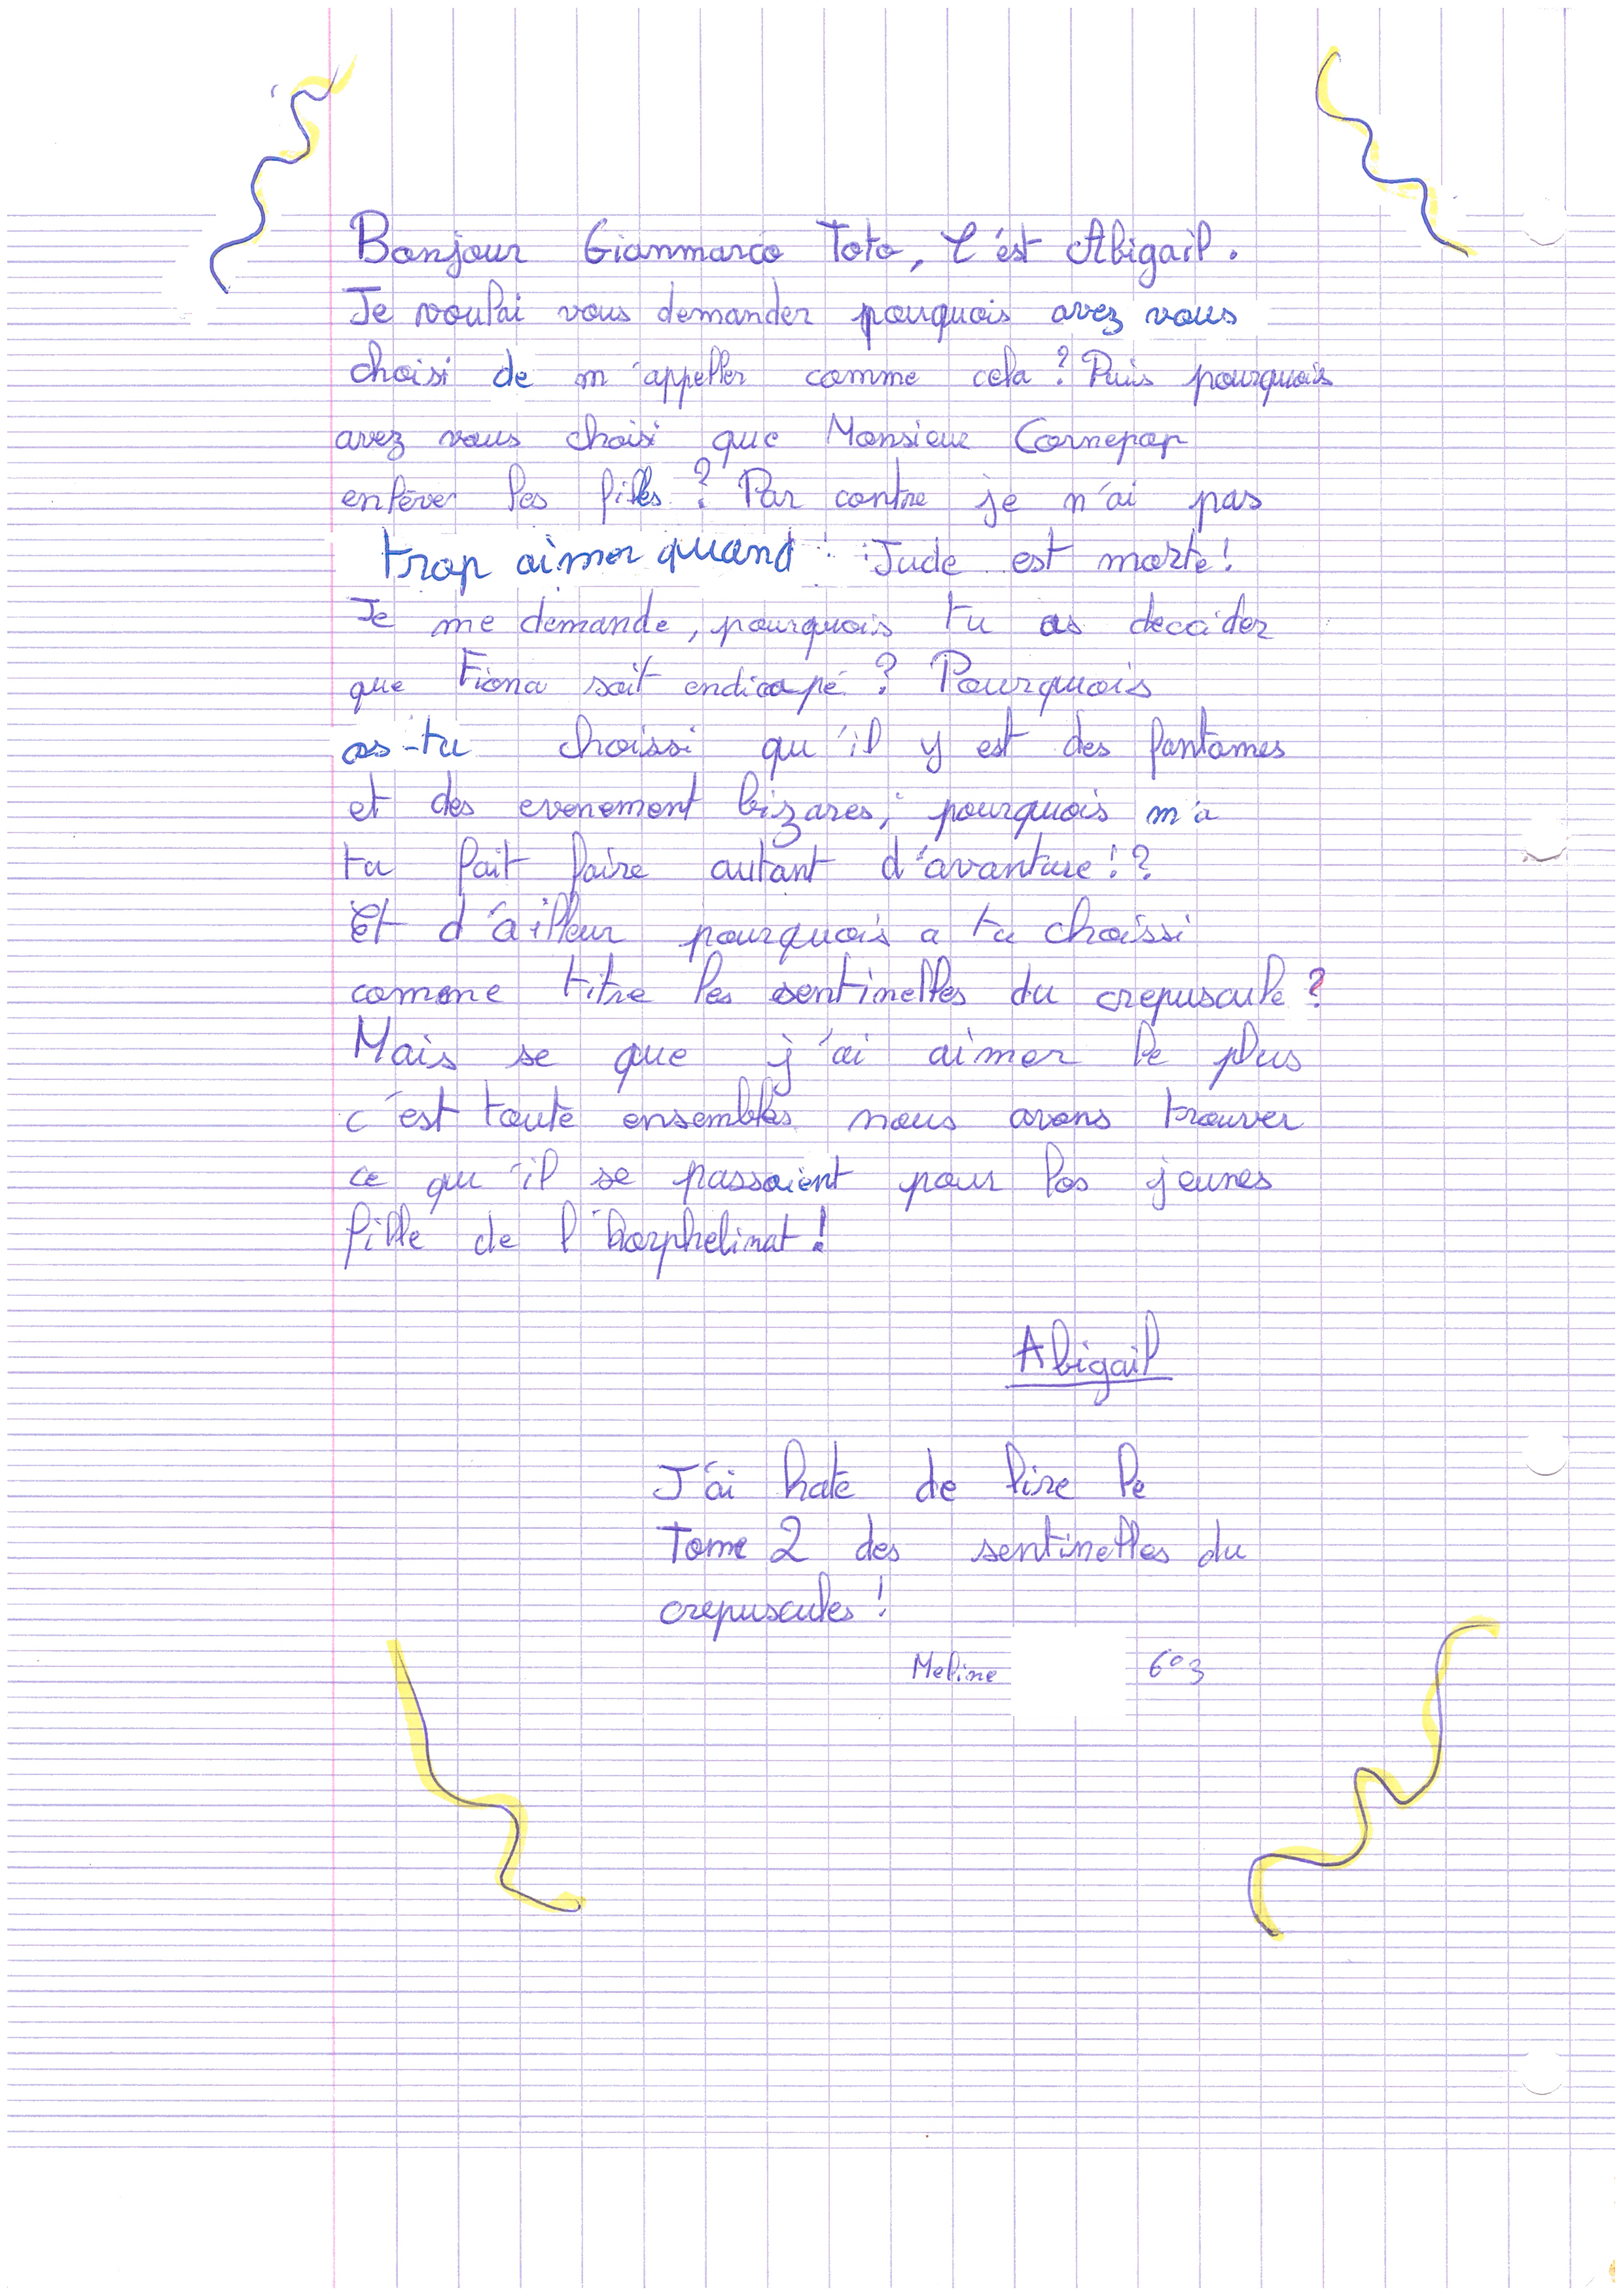 Bonjour Gianmarco Toto, C'est Abigail.
Je voulai vous demander pourquois avez vous
choisi de m'appeller comme cela ? Puis pourquois
avez vous choisi que Monsieur Cornepop
enlève les filles ? Par contre je n'ai pas
trop aimer quand Jude est morte !
Je me demande, pourquois tu as decider
que Fiona soit endicapé ? Pourquois
as-tu choissi qu'il y est des fantomes
et des evenement bizares, pourquois m'a
tu fait faire autant d'avanture !?
Et d'ailleur pourquois a tu choissi
comme titre les sentinelles du crepuscule ?
Mais se que j'ai aimer le plus
c'est toute ensembles nous avons trouver
ce qu'il se passaient pour les jeunes
fille de l'horphelinat !
Abigail
J'ai hate de lire le
Tome 2 des sentinelles du
crepuscules !
Meline 6°3